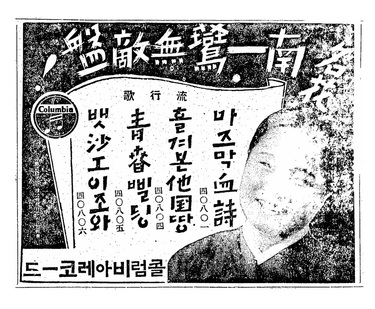 名花
南一鷰無敵盤!
Columbia
流行歌
마즈막血詩
四〇八〇一
흘겨본他国땅
四〇八〇四
青春삘딍
四〇八〇五
뱃沙工이조와
四〇八〇六
콜럼비아레코ー드